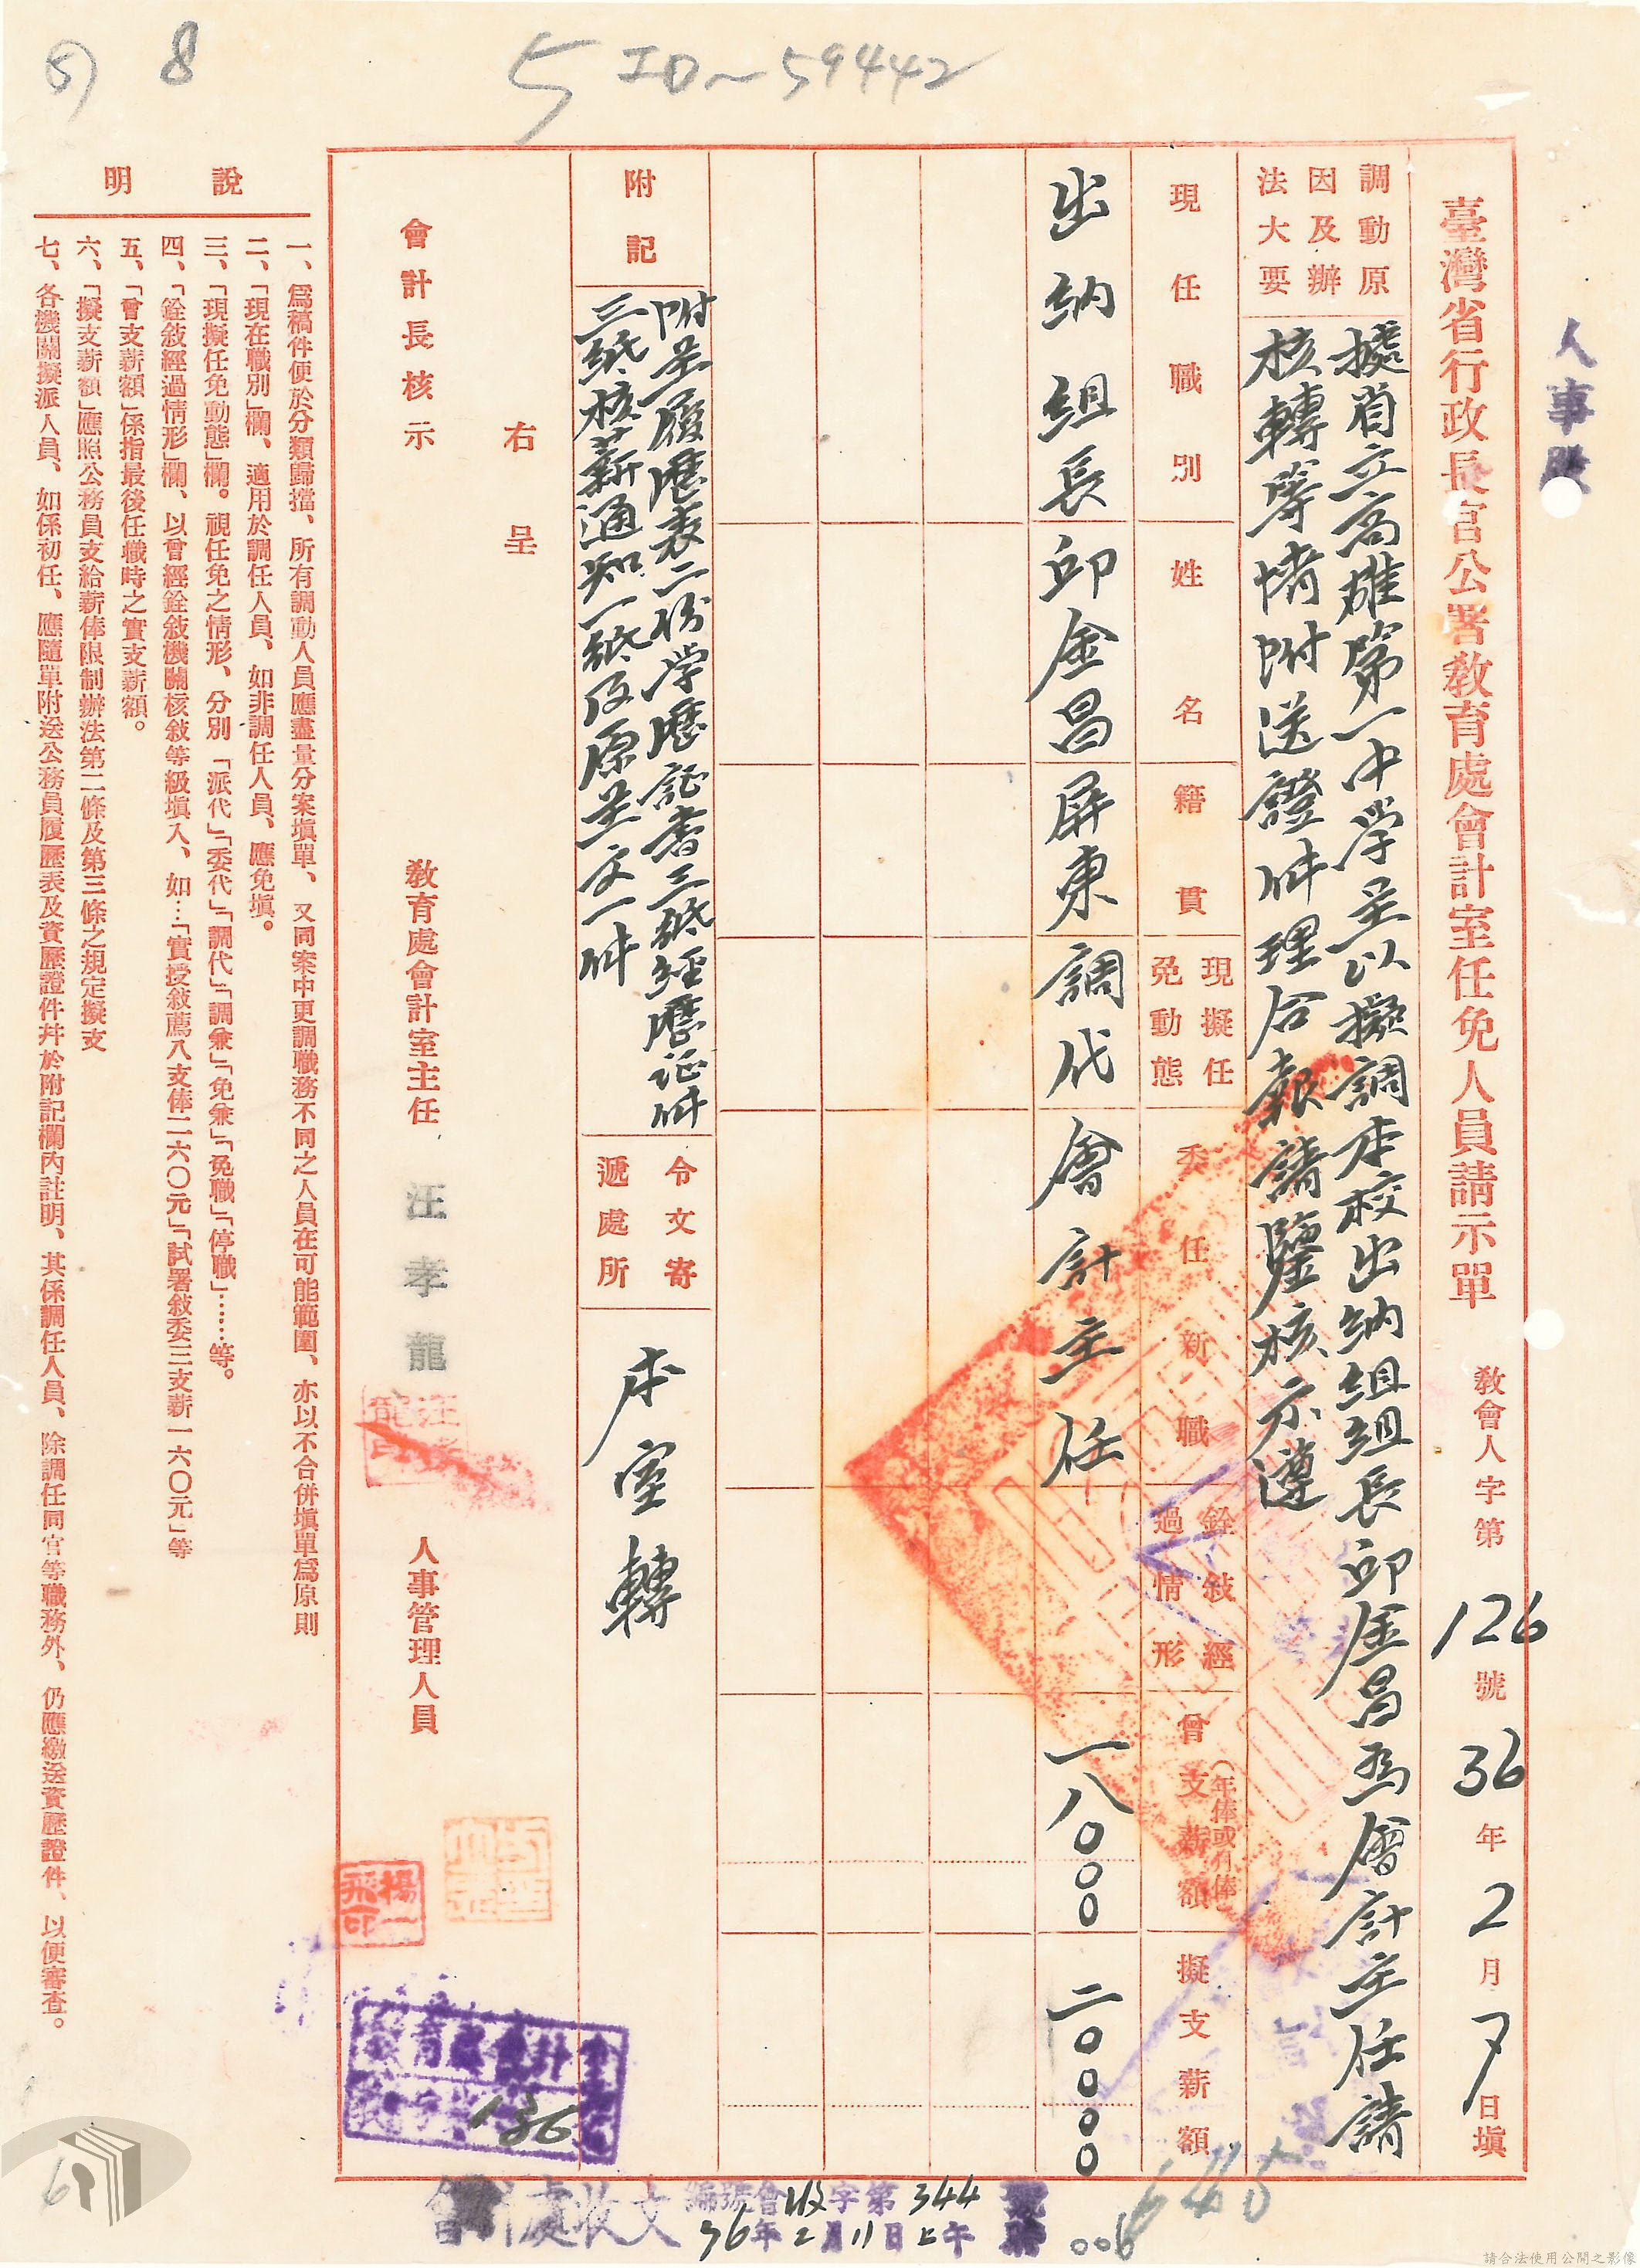 5 ID~59442
8
(5)
人事股
臺灣省行政長官公署教育處會計室任免人員請示單 教會人字第126號 36年2月7日填
調動原因及辦法大要
據省立高雄第一中學呈以擬調本校出納組組長邱金昌為會計主任請
核轉等情附送證件理合報請鑒核示遵
現任職別
姓名
籍貫
現擬任免動態
委任新職
銓敍經過情形
曾支薪額(年俸或月俸)
擬支薪額
出納組長
邱金昌
屏東
調代
會計主任
一八〇〇〇
二〇〇〇〇
附記
附呈履歷表二份学歷証書三紙經歷証件
三紙核薪通知一紙及原呈文一件
令文寄遞處所
本室轉
右呈
會計長核示
教育處會計室主任 汪孝龍
人事管理人員
楊一飛印
教育處會計室
136
說明
一、爲稿件便於分類歸擋、所有調動人員應盡量分案塡單、又同案中更調職務不同之人員在可能範圍、亦以不合併塡單爲原則
二、「現在職別」欄、適用於調任人員、如非調任人員、應免塡。
三、「現擬任免動態」欄。視任免之情形、分別「派代」「委代」「調代」「調兼」「免兼」「免職」「停職」……等。
四、「銓敍經過情形」欄、以曾經銓敍機關核敍等級塡入、如…「實授敍薦八支俸二六〇元」「試署敍委三支薪一六〇元」等
五、「曾支薪額」係指最後任職時之實支薪額。
六、「擬支薪額」應照公務員支給薪俸限制辦法第二條及第三條之規定擬支
七、各機關擬派人員、如係初任、應隨單附送公務員履歷表及資歷證件幷於附記欄內註明、其係調任人員、除調任同官等職務外、仍應繳送資歷證件、以便審查。
會計處收文 編號會收字第344號
36年2月11日上午 時
006
645
6
請合法使用公開之影像